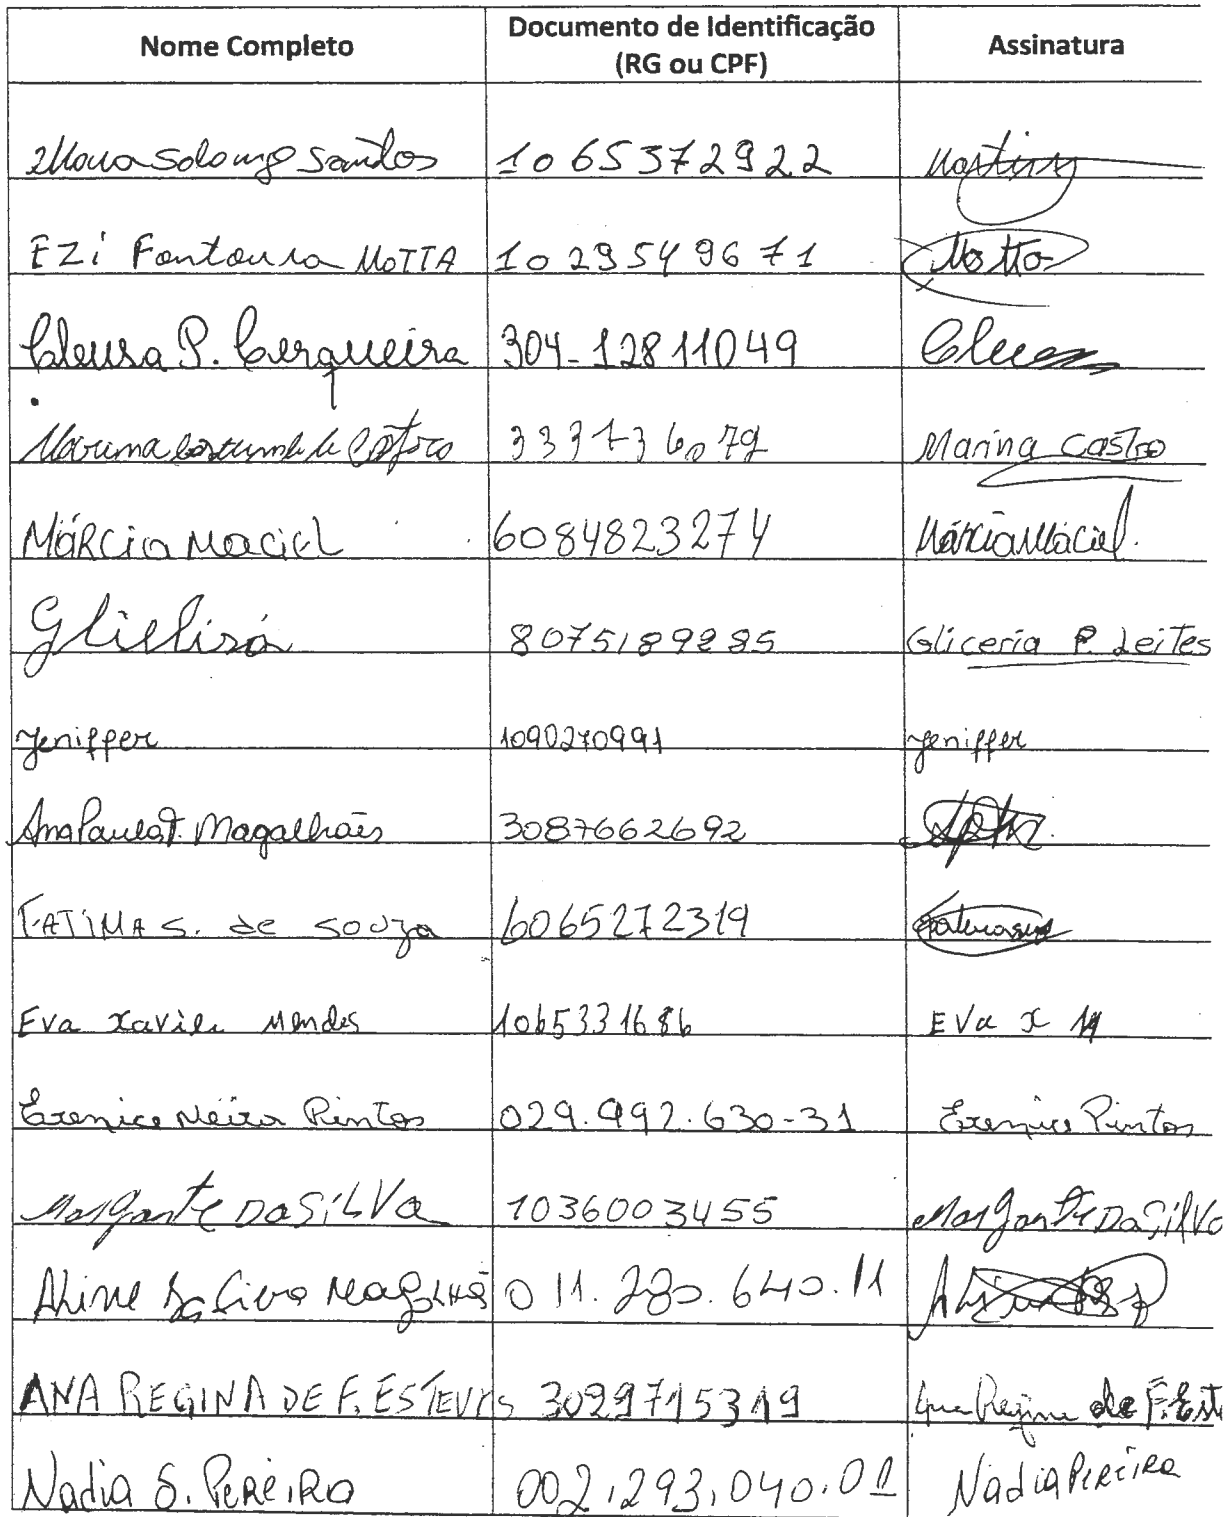 Nome Completo Documento de Identificação (RG ou CPF) Assinatura
Santos 1065372922
EZi Fontoura MOTTA 1029549671 Motta
Cleusa P. Cerqueira 304-12811049
Marina de Castro Marina Castro
MÁRCia Maciel 6084823274 Márcia Maciel.
8075189285 Gliceria P. Leites
Jeniffer 1090270991 Jeniffer
Ana Paula F. Magalhães 3087662692
FATIMA S. de souza 6065272319
Eva Xavier Mendes 1065331686 Eva X
Erenice Neiva Pintos 029.992.630-31 Erenice Pintos
Margarete DA SiLVa 1036003455 Margarete DA SilVa
Aline da Silva 011.280.640.11
ANA REGINA DE F. ESTEVES 3029715319 Ana Regina de F. Est
Nadia S. PEREiRa 002.293.040.01 Nadia PEREiRa